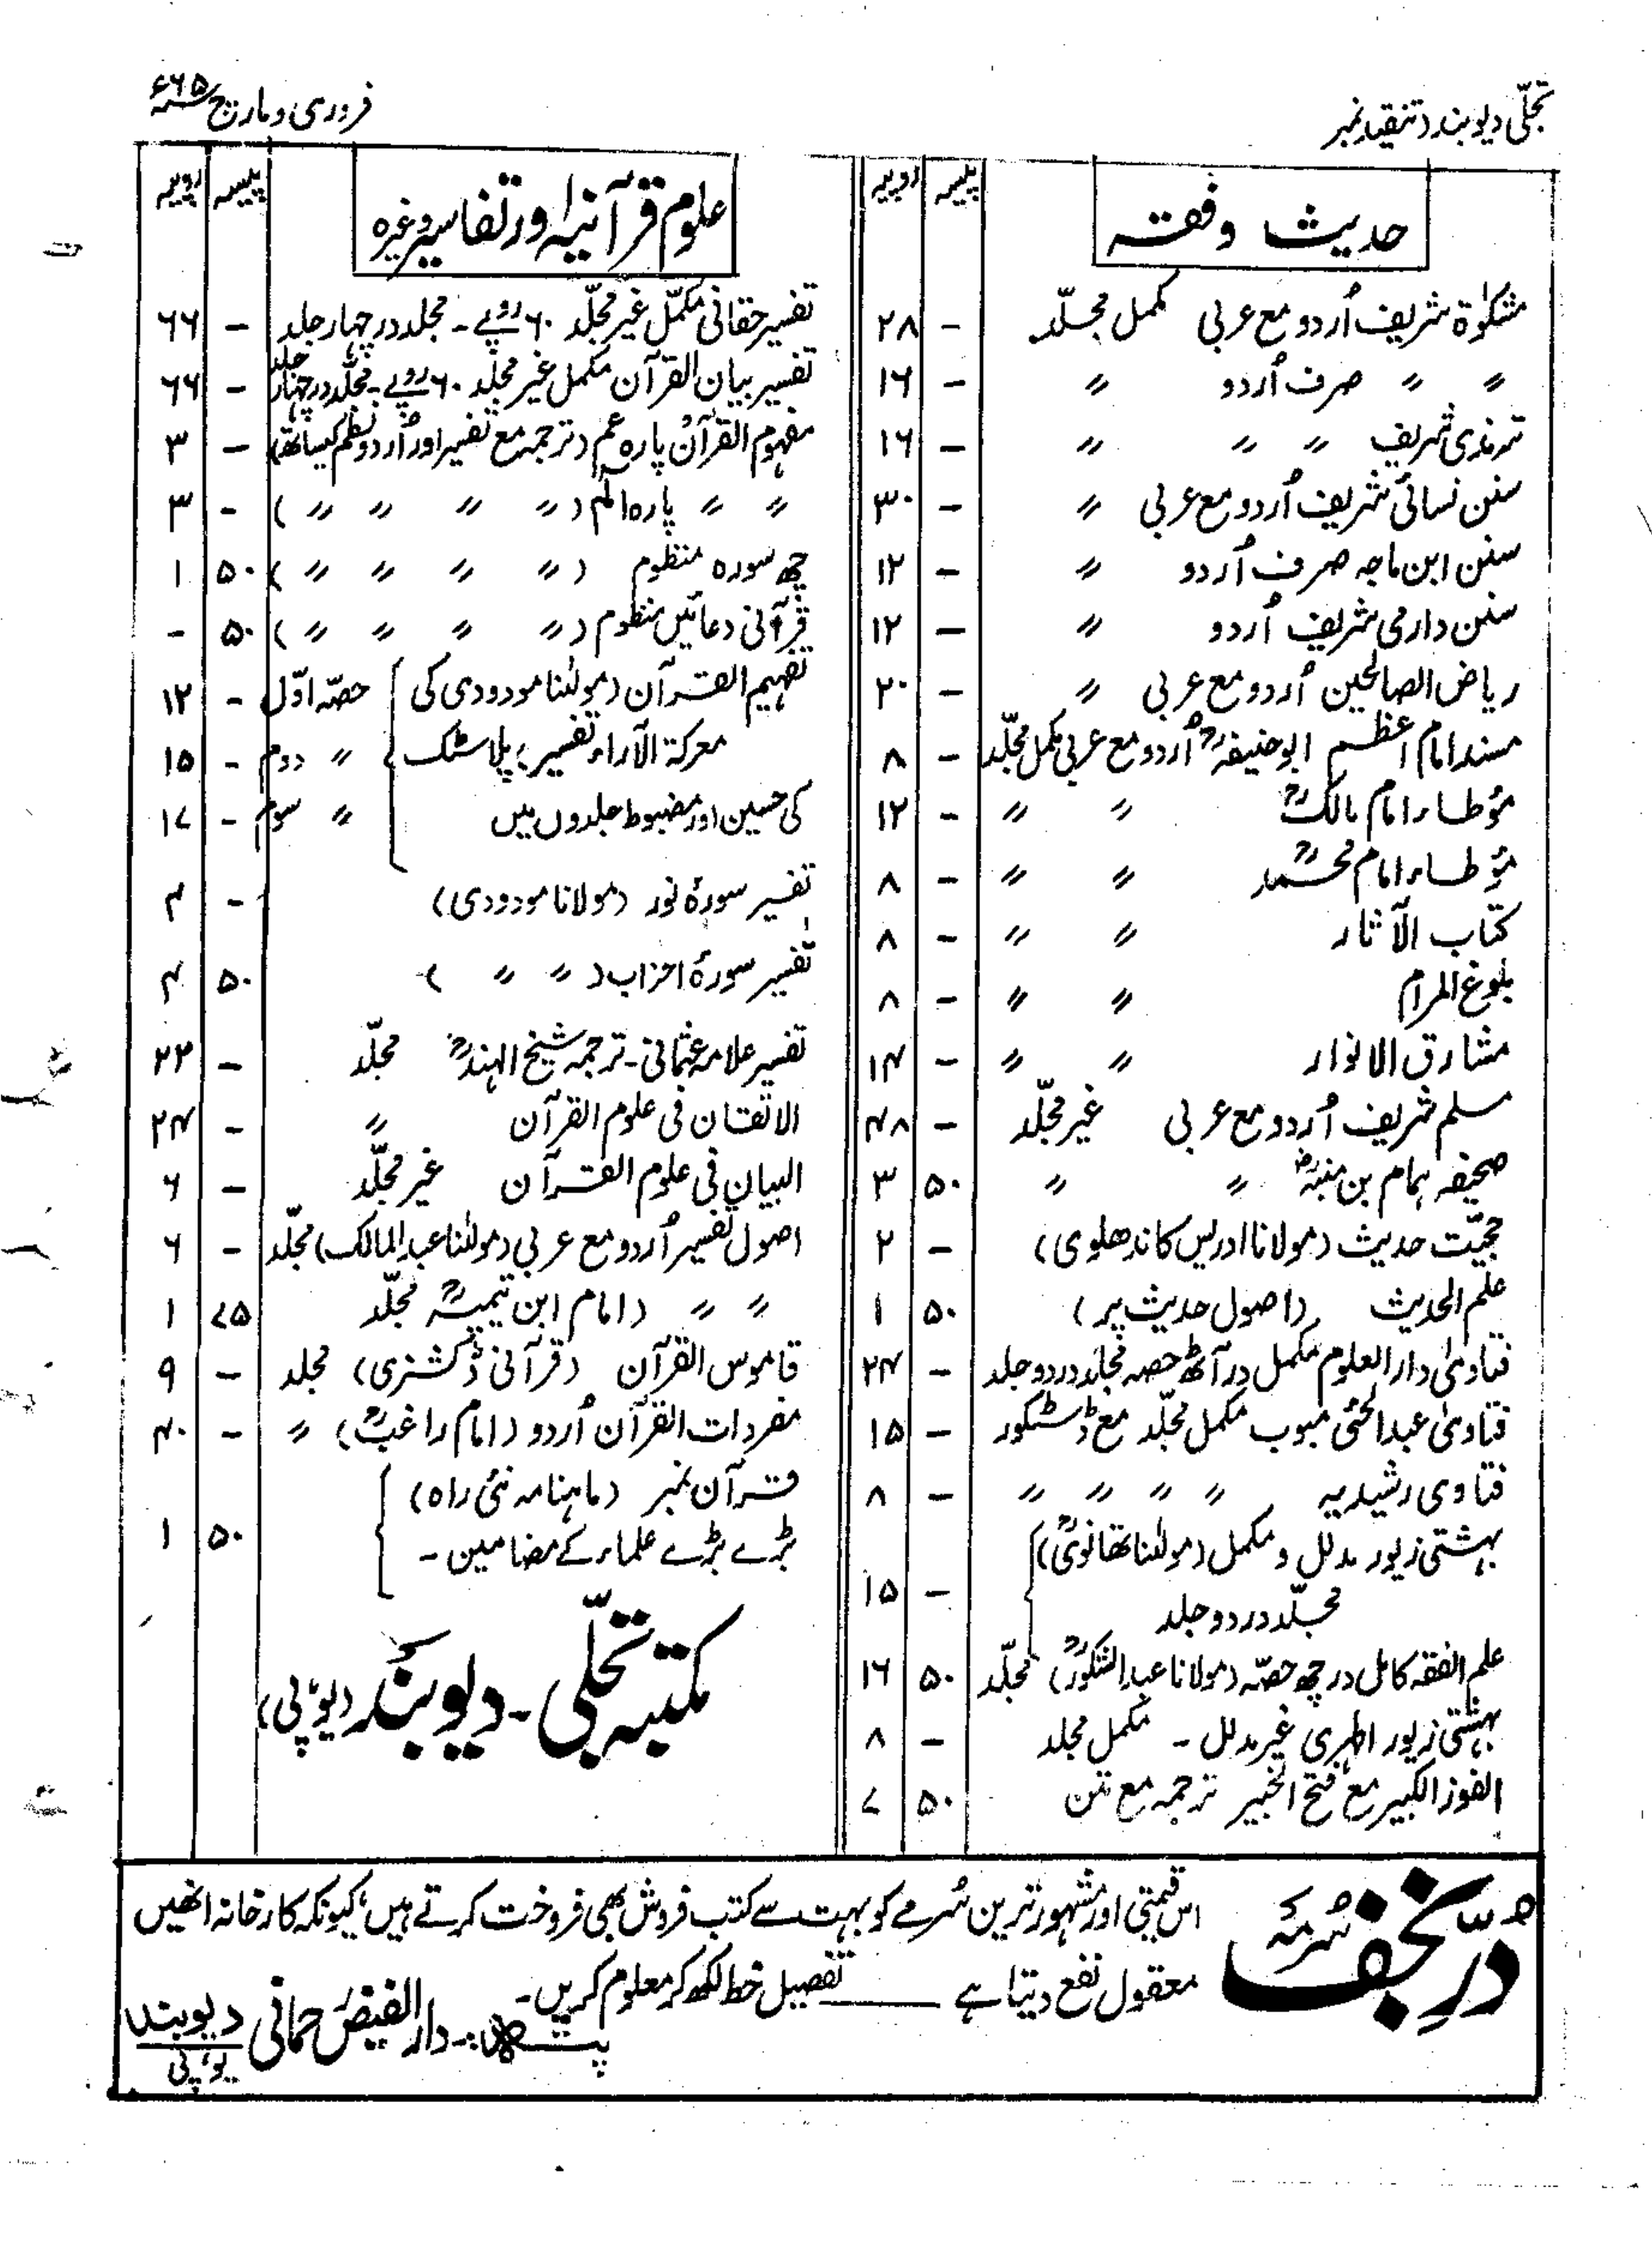 تجلّی دیوبند (تنقید نمبر
فروری و مارچ ۶۶۵ء
حدیث و فقہ
پیسہ روپیہ
مشکوٰۃ شریف اُردو مع عربی مکمل مجلّد - ۲۸
〃 〃 صرف اُردو 〃 - ۱۶
ترمذی شریف 〃 〃 〃 - ۱۶
سنن نسائی شریف اُردو مع عربی 〃 - ۳۰
سنن ابن ماجہ صرف اُردو 〃 - ۱۲
سنن دارمی شریف اُردو 〃 - ۱۲
ریاض الصالحین اُردو مع عربی 〃 - ۲۰
مسند امام اعظم ابو حنیفہؒ اُردو مع عربی مکمل مجلّد - ۸
مؤطاء امام مالکؒ 〃 〃 - ۱۲
مؤطاء امام محمدؒ 〃 〃 - ۸
کتاب الآثار 〃 〃 - ۸
بلوغ المرام 〃 〃 - ۸
مشارق الانوار 〃 〃 - ۱۴
مسلم شریف اُردو مع عربی غیر مجلّد - ۴۸
صحیفہ ہمام بن منبہؓ 〃 〃 ۵۰ ۳
حجیّت حدیث (مولانا ادریس کاندھلوی) - ۲
علم الحدیث (اصول حدیث پر) ۵۰ ۱
فتاویٰ دارالعلوم مکمل در آٹھ حصہ مجلد در دو جلد - ۲۴
فتاویٰ عبدالحئی مبوب مکمل مجلّد مع ڈسٹکور - ۱۵
فتاوی رشیدیہ 〃 〃 〃 〃 - ۸
بہشتی زیور مدلل و مکمل (مولٰنا تھانویؒ)
مجلّد در دو جلد - ۱۵
علم الفقہ کامل در چھ حصّہ (مولانا عبدالشکورؒ) مجلّد ۵۰ ۱۶
بہشتی زیور اظہری غیر مدلل - مکمل مجلد - ۸
الفوز الکبیر مع فتح الخبیر ترجمہ مع متن ۵۰ ۷
علوم قرآنیہ اور تفاسیر وغیرہ
پیسہ روپیہ
تفسیر حقانی مکمّل غیر مجلّد ۶۰ روپے - مجلد در چہار جلد - ۶۶
تفسیر بیان القرآن مکمل غیر مجلّد ۶۰ روپے - مجلّد در چہار جلد - ۶۶
مفہوم القرآن پارہ عم (ترجمہ مع تفسیر اور اُردو نظم کیساتھ) - ۳
〃 〃 پارہ الٓم (〃 〃 〃 〃) - ۳
چھ سورہ منظوم (〃 〃 〃 〃) ۵۰ ۱
قرآنی دعائیں منظوم (〃 〃 〃 〃) ۵۰ -
تفہیم القرآن (مولٰنا مودودی کی حصّہ اوّل - ۱۲
معرکۃ الآراء تفسیر) پلاسٹک 〃 دوم - ۱۵
کی حسین اور مضبوط جلدوں میں 〃 سوم - ۱۷
تفسیر سورۂ نور (مولانا مودودی) - ۴
تفسیر سورۂ احزاب (〃 〃) ۵۰ ۴
تفسیر علامہ عثمانی - ترجمہ شیخ الہندؒ مجلّد - ۲۲
الاتقان فی علوم القرآن 〃 - ۲۴
البیان فی علوم القرآن غیر مجلّد - ۶
اصول تفسیر اُردو مع عربی (مولٰنا عبدالمالک) مجلّد - ۶
〃 〃 (امام ابن تیمیہؒ مجلّد ۷۵ ۱
قاموس القرآن (قرآنی ڈکشنری) مجلد - ۹
مفردات القرآن اُردو (امام راغبؒ) 〃 - ۴۰
قرآن نمبر (ماہنامہ نئی راہ)
بڑے بڑے علماء کے مضامین - ۵۰ ۱
مکتبہ تجلّی - دیوبند (یو،پی)
دُرِّ نجف سُرمہ
اس قیمتی اور مشہور ترین سُرمے کو بہت سے کتب فروش بھی فروخت کرتے ہیں، کیونکہ کارخانہ انھیں
معقول نفع دیتا ہے ــــــ تفصیل خط لکھ کر معلوم کریں۔
پتہ :- دار الفیض رحمانی دیوبند
یو، پی